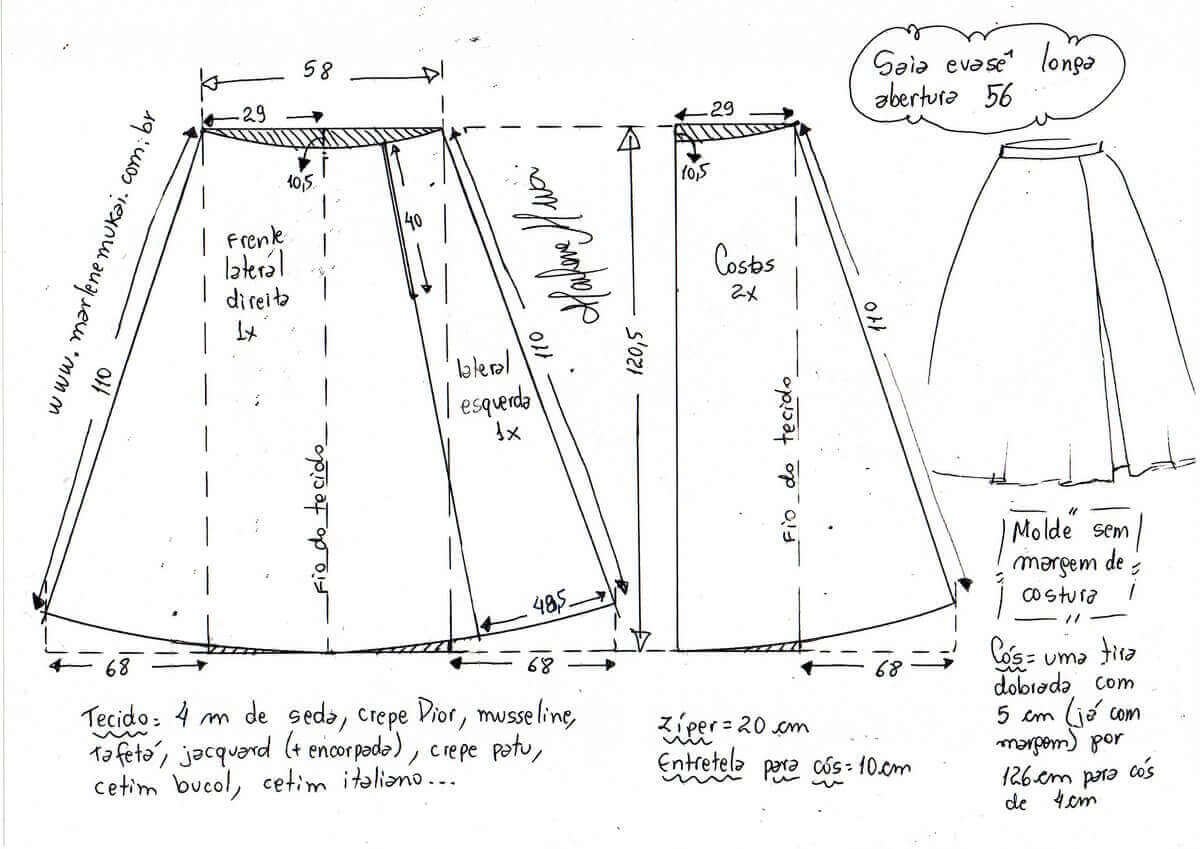 58
29
10,5
www.marlenemukai.com.br
110
Frente
lateral
direita
1x
40
Fio do tecido
lateral
esquerda
1x
110
48,5
68
68
120,5
29
10,5
Costas
2x
Fio do tecido
110
68
Saia evasê longa
abertura 56
"Molde" sem
margem de
costura
Cós = uma tira
dobrada com
5 cm (já com
margem) por
126 cm para cós
de 4 cm
Tecido: 4 m de seda, crepe Dior, musseline,
tafetá, jacquard (+ encorpada), crepe patu,
cetim bucol, cetim italiano...
Zíper = 20 cm
Entretela para cós = 10 cm